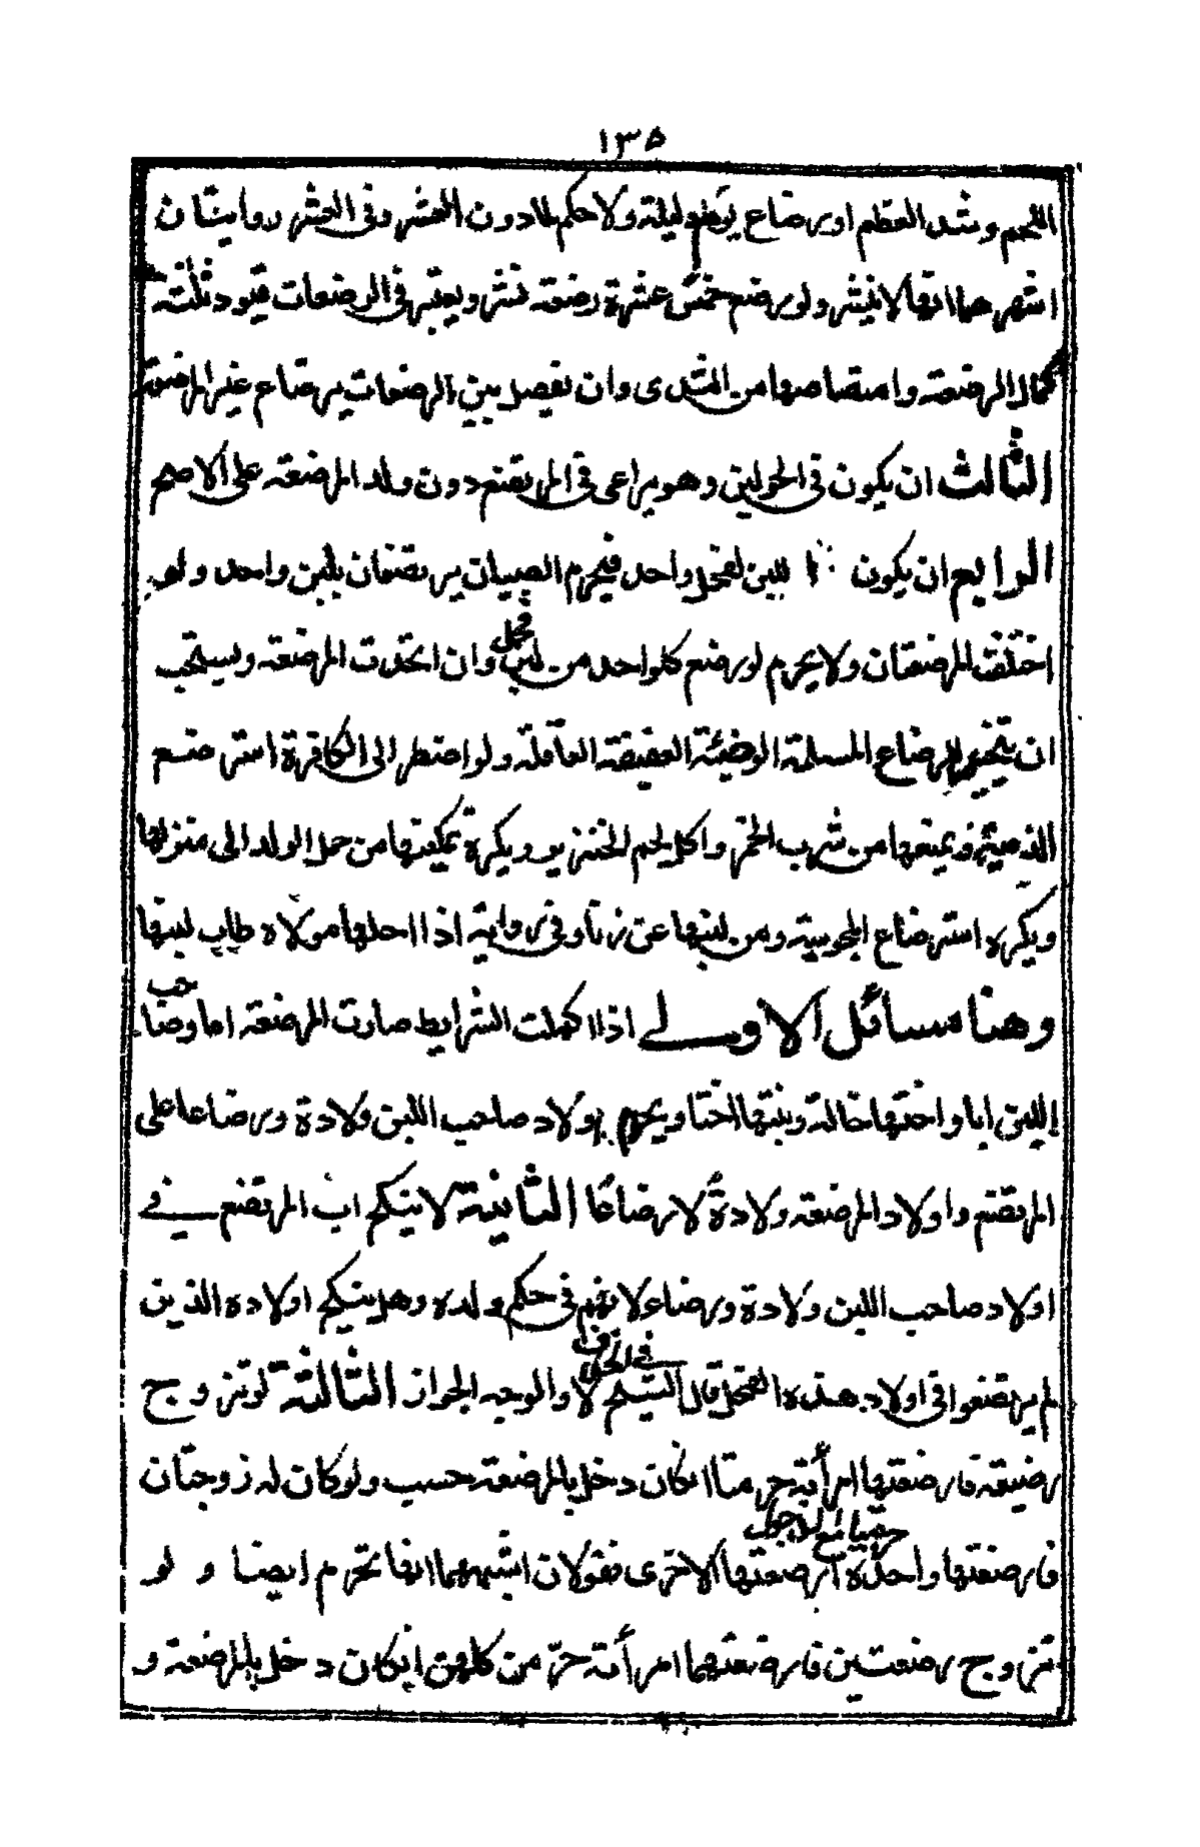 ١٣٥
اللحم وشد العظم او رضاع يوم وليلة ولا حكم لما دون العشر وفى العشر روايتان
اشهرهما انها لا ينشر ولو رضع خمس عشرة رضعة نشر ويعتبر فى الرضعات قيود ثلثة
كمال الرضعة وامتصاصها من الثدى وان لا يفصل بين الرضعات برضاع غير المرضعة
الثالث ان يكون فى الحولين وهو يراعى فى المرتضع دون ولد المرضعة على الاصح
الرابع ان يكون اللبن لفحل واحد فيحرم الصبيان يرتضعان بلبن واحد ولو
اختلفت المرضعتان ولا يحرم لو رضع كل واحد من لبن فحل وان اتحدت المرضعة ويستحب
ان يتخير للرضاع المسلمة الوضيئة العفيفة العاقلة ولو اضطر الى الكافرة استرضع
الذمية ويمنعها من شرب الخمر واكل لحم الخنزير ويكره تمكينها من حمل الولد الى منزلها
ويكره استرضاع المجوسية ومن لبنها عن زنا وفى رواية اذا احلها مولاه طاب لبنها
وهنا مسائل الاولى اذا كملت الشرايط صارت المرضعة اما وصاحب
اللبن ابا واختها خالة وبنتها اختا ويحرم اولاد صاحب اللبن ولادة ورضاعا على
المرتضع واولاد المرضعة ولادة لا رضاعا الثانية لا ينكح اب المرتضع فى
اولاد صاحب اللبن ولادة ورضاعا لانهم فى حكم ولده وهل ينكح اولاده الذين
لم يرتضعوا فى اولاد هذه الفحل قال الشيخ فى الخلاف لا والوجه الجواز الثالثة لو تزوج
رضيعة فارضعتها امرأته حرمتا ان كان دخل بالمرضعة حسب ولو كان له زوجتان
فارضعتها واحدة حرمتا مع الدخول ارضعتها الاخرى فقولان اشبههما انها تحرم ايضا ولو
تزوج رضعتين فارضعتهما امرأته حرمن كلهن ان كان دخل بالمرضعة و